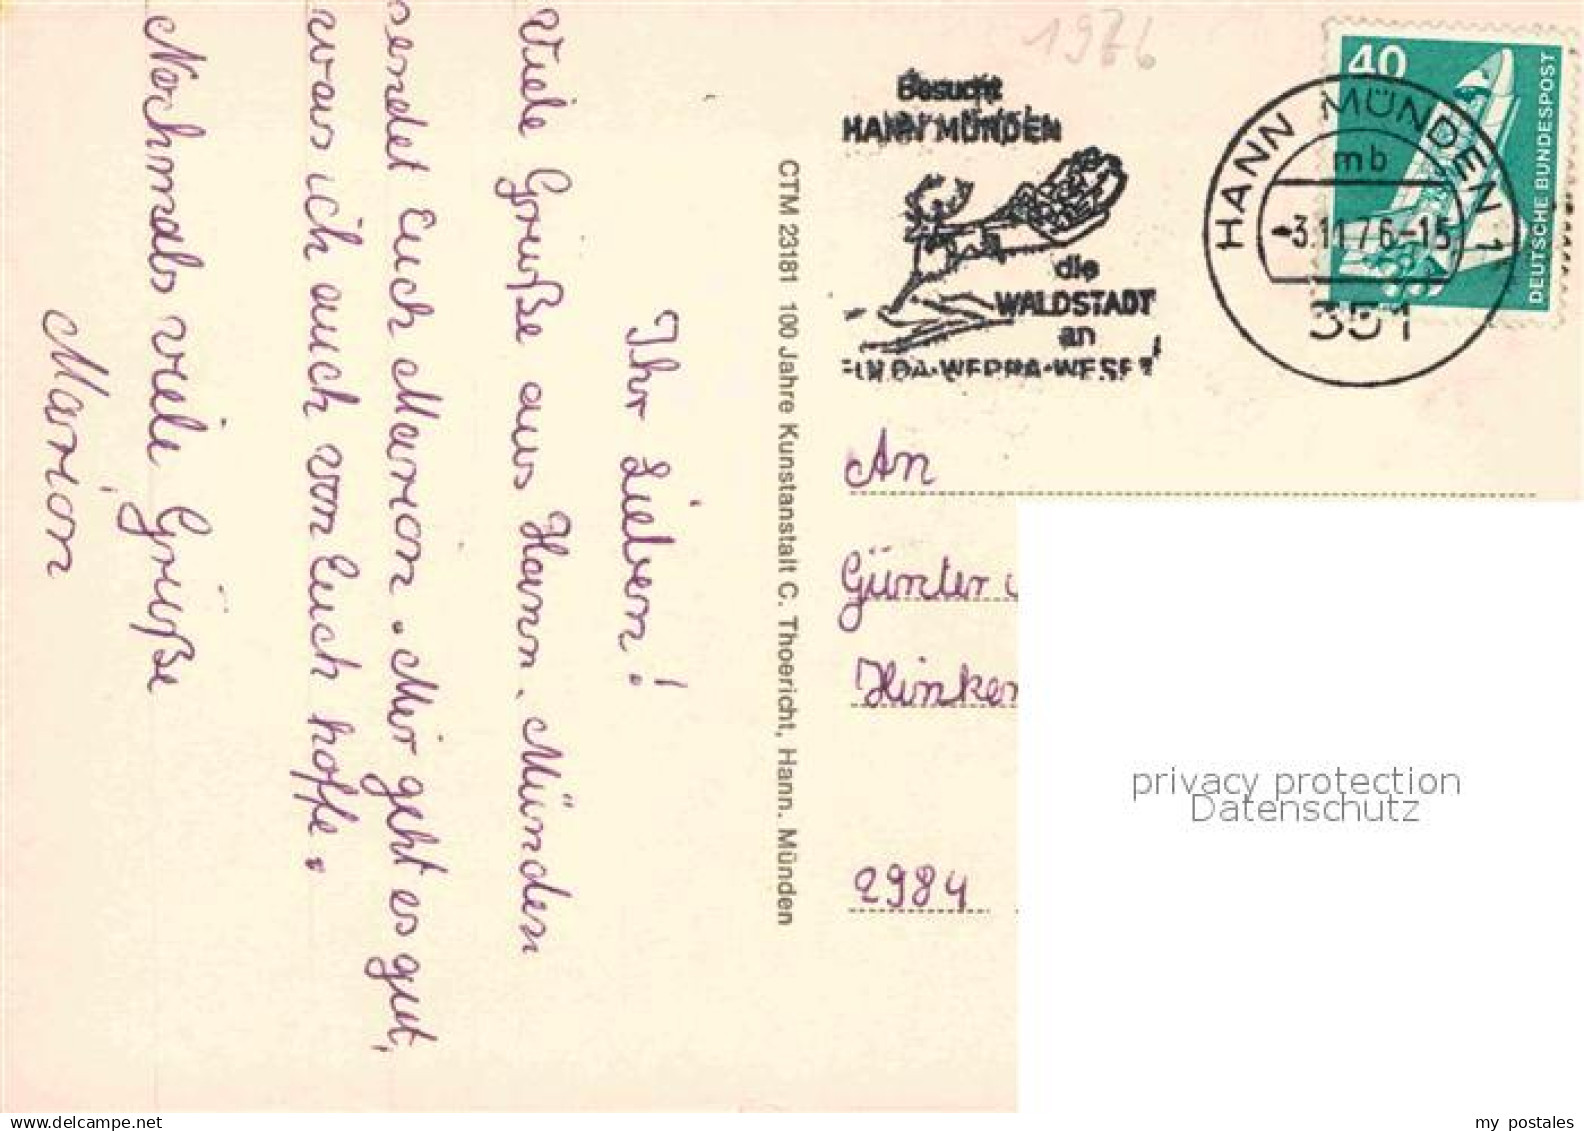 1976
Besucht
HANN MÜNDEN
die
WALDSTADT
an
FULDA-WERRA-WESER
40
DEUTSCHE BUNDESPOST
HANN MÜNDEN 1
mb
-3.11.76-15
351
Ihr Lieben!
Viele Grüße aus Hann. Münden
sendet Euch Marion. Mir geht es gut,
was ich auch von Euch hoffe.
Nochmals viele Grüße
Marion
CTM 23181 100 Jahre Kunstanstalt C. Thoericht, Hann. Münden
An
Günter
2984
privacy protection
Datenschutz
www.ansichtskartenversand.com
my postales